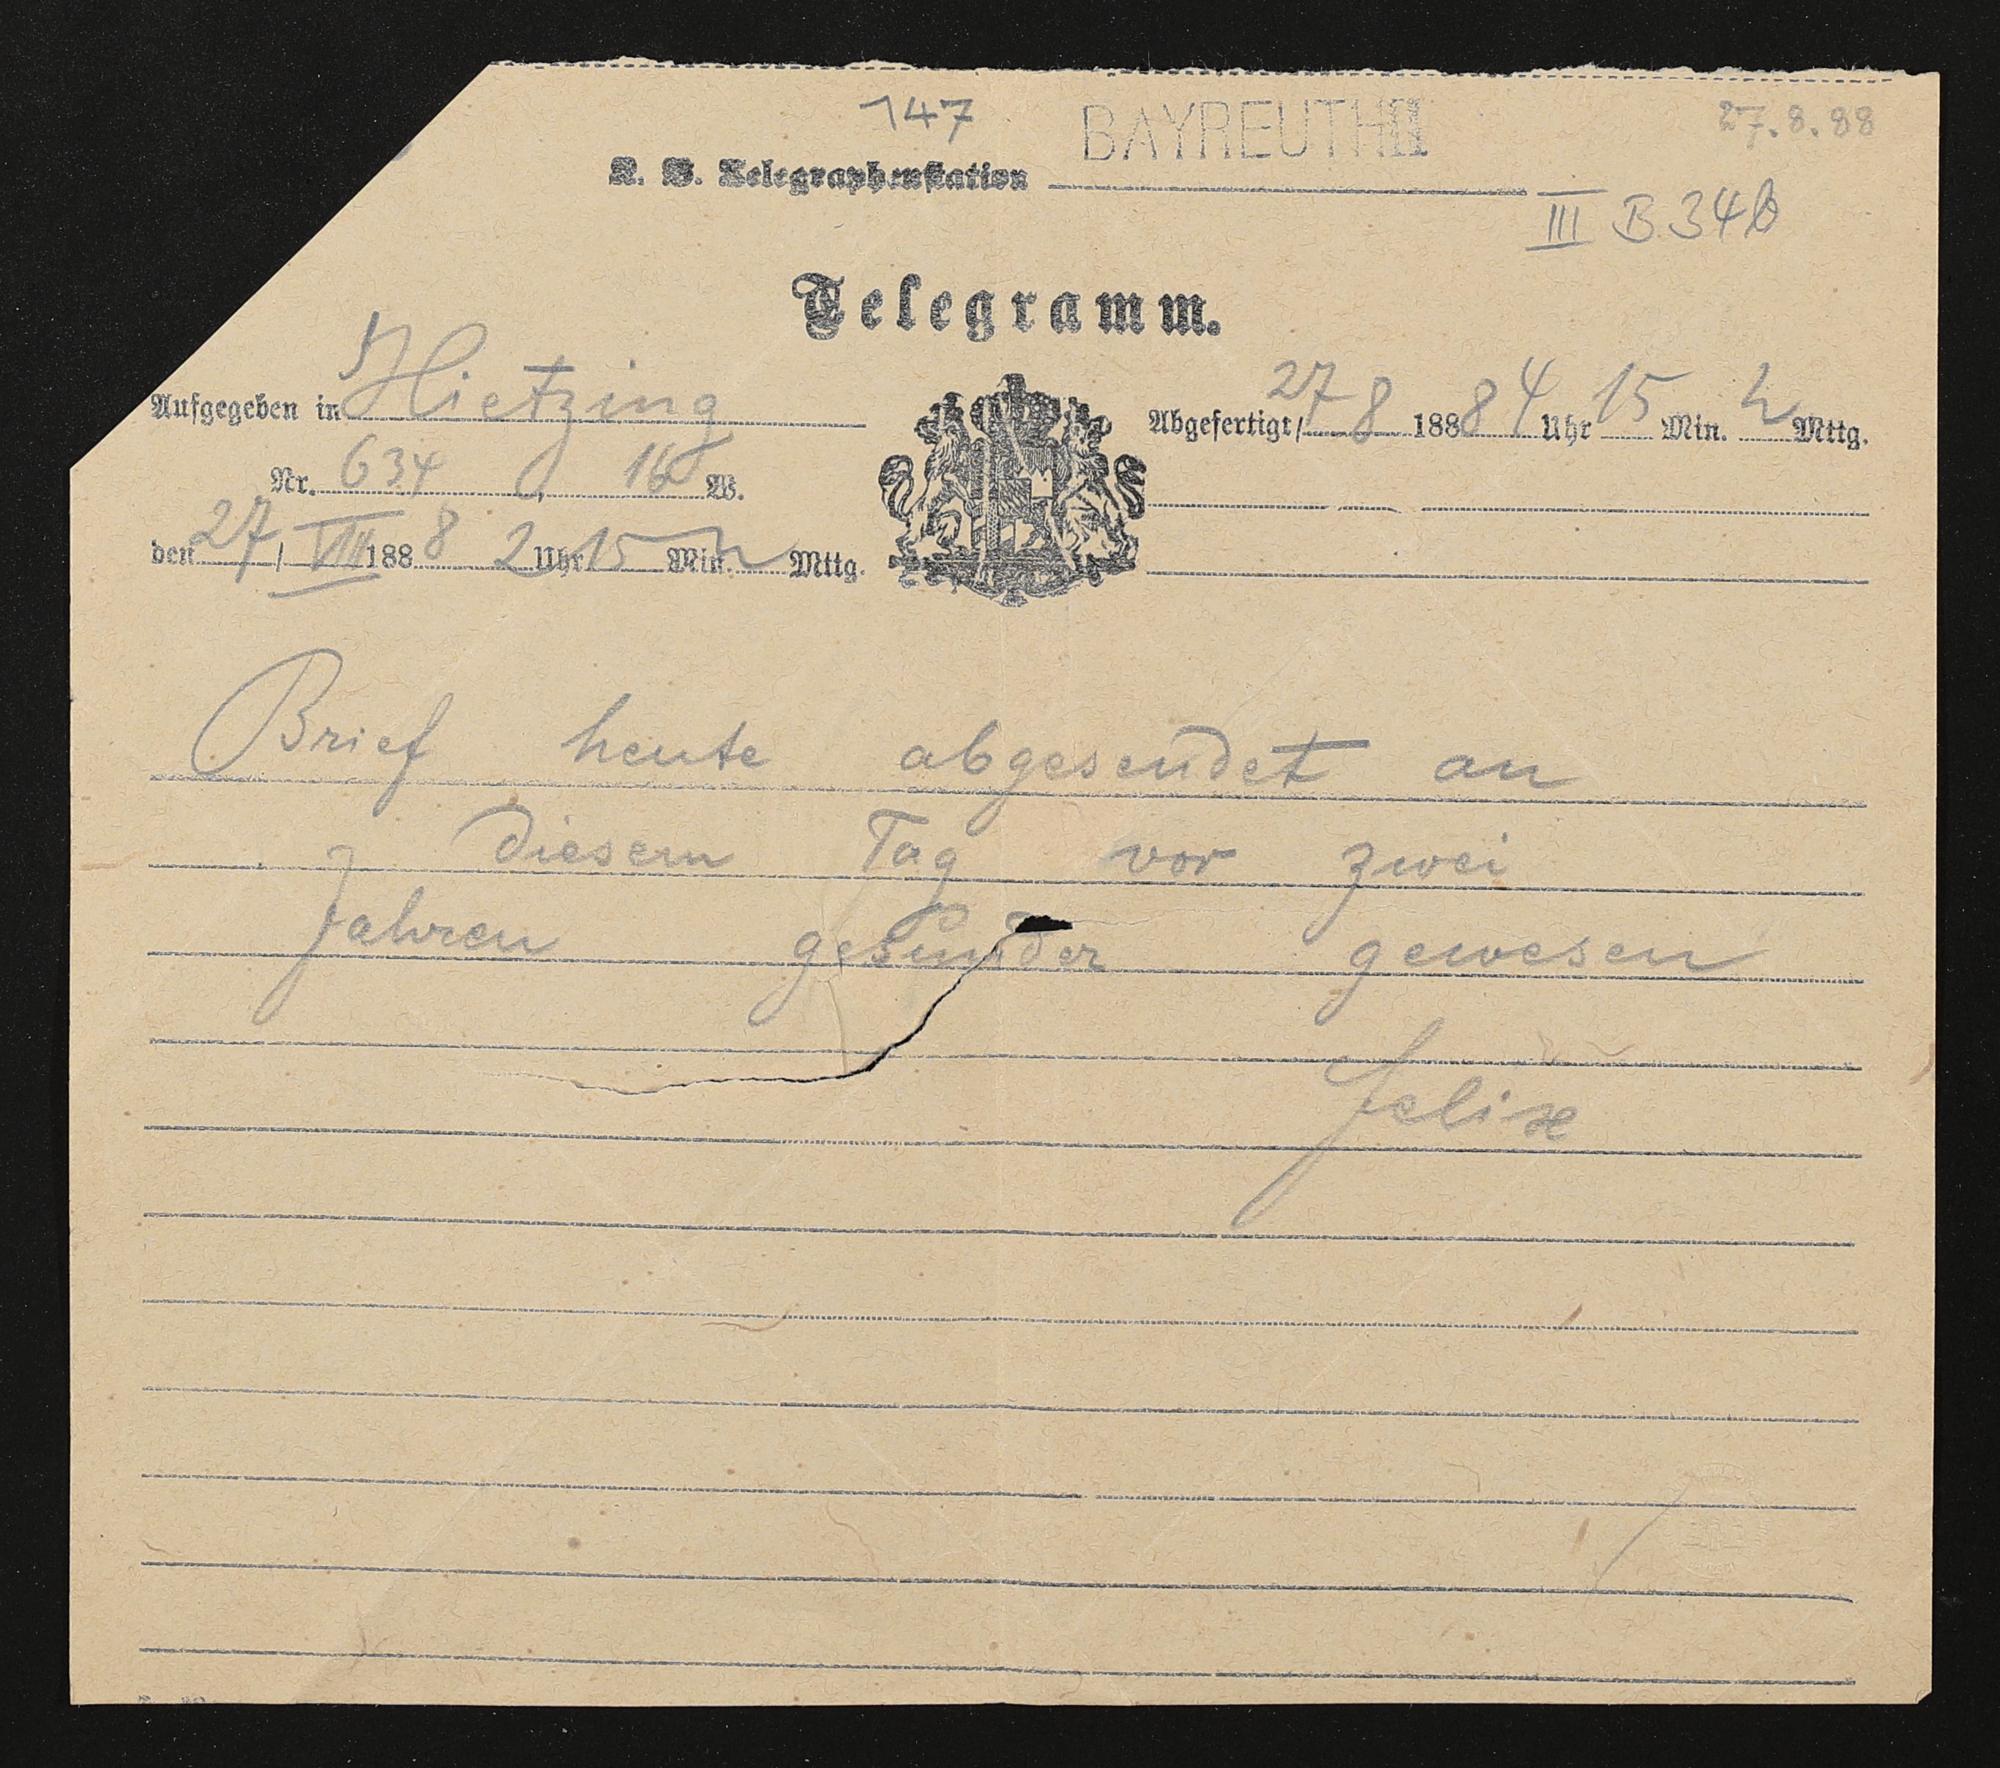 147
BAYREUTH II
27.8.88
K. B. Telegraphenstation
III B 34b
Telegramm.
Aufgegeben in Hietzing
Abgefertigt 27/8 1888 4 Uhr 15 Min. N Mttg.
Nr. 634, 16 W.
den 27/VIII 1888 2 Uhr 15 Min. N Mttg.
Brief heute abgesendet an
diesem Tag vor zwei
Jahren gesunder gewesen
Felix